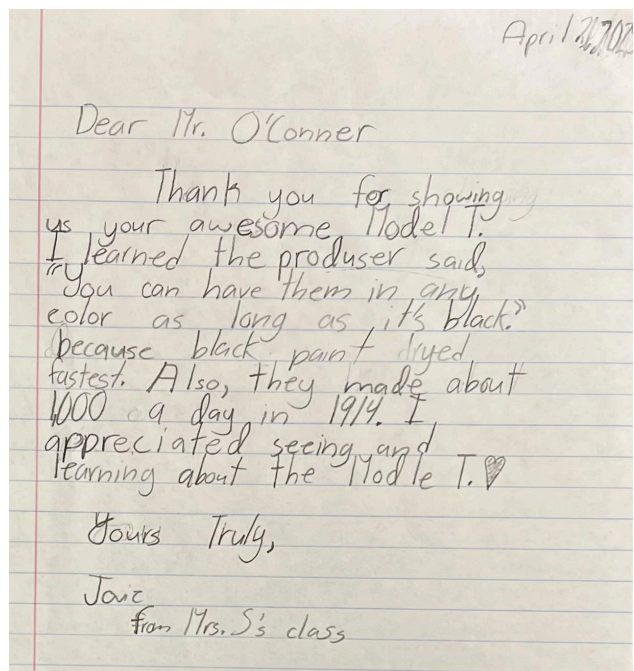 April
Dear Mr. O'Conner
Thank you for showing
us your awesome Model T.
I learned the produser said,
"You can have them in any
color as long as it's black."
because black paint dryed
fastest. Also, they made about
1000 a day in 1914. I
appreciated seeing and
learning about the Modle T.
Yours Truly,
from Mrs. S's class